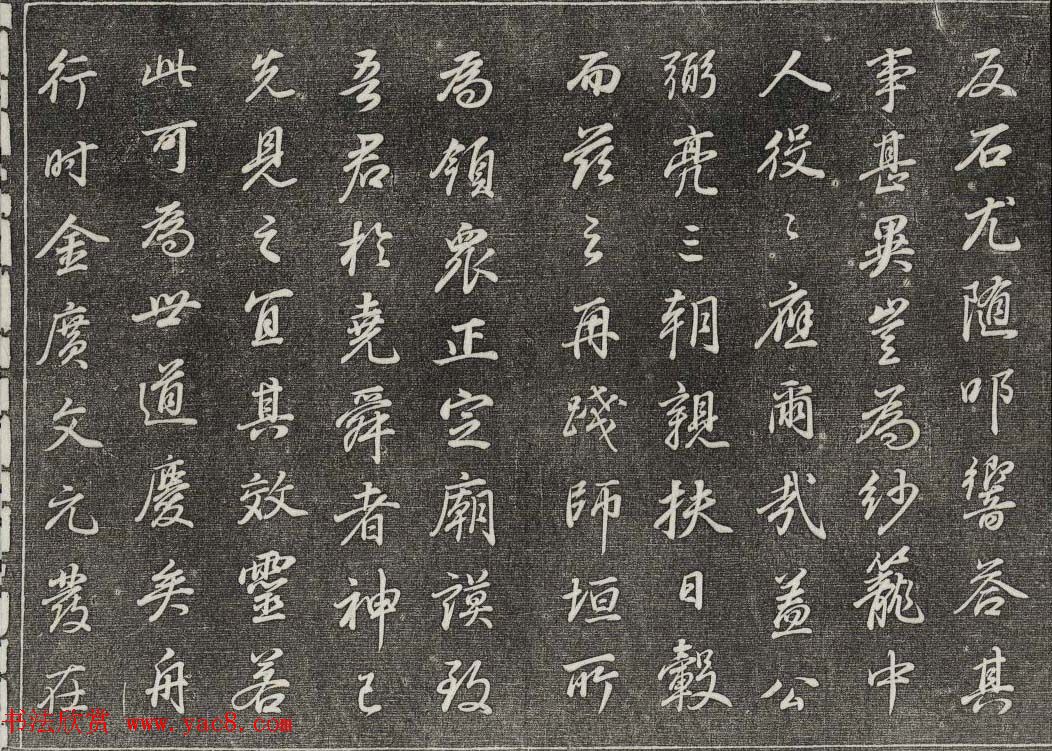 反石尤随叩響荅其
事甚異豈為紗籠中
人役〻應爾㢤蓋公
弼亮三朝親扶日轂
而茲之再踐師垣所
為領眾正定廟謨致
吾君於堯舜者神已
先見之宜其效靈若
此可為世道慶矣舟
行时金廣文元發在
书法欣赏 www.yac8.com